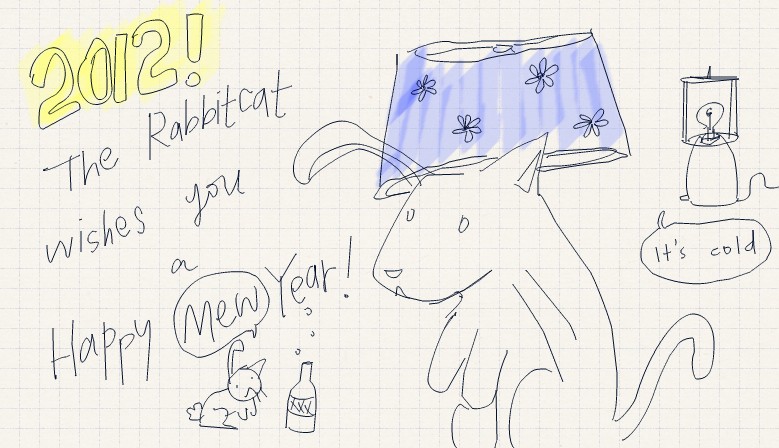 2012!
The Rabbitcat
wishes you
a
Happy Mew Year!
XXX
It's cold